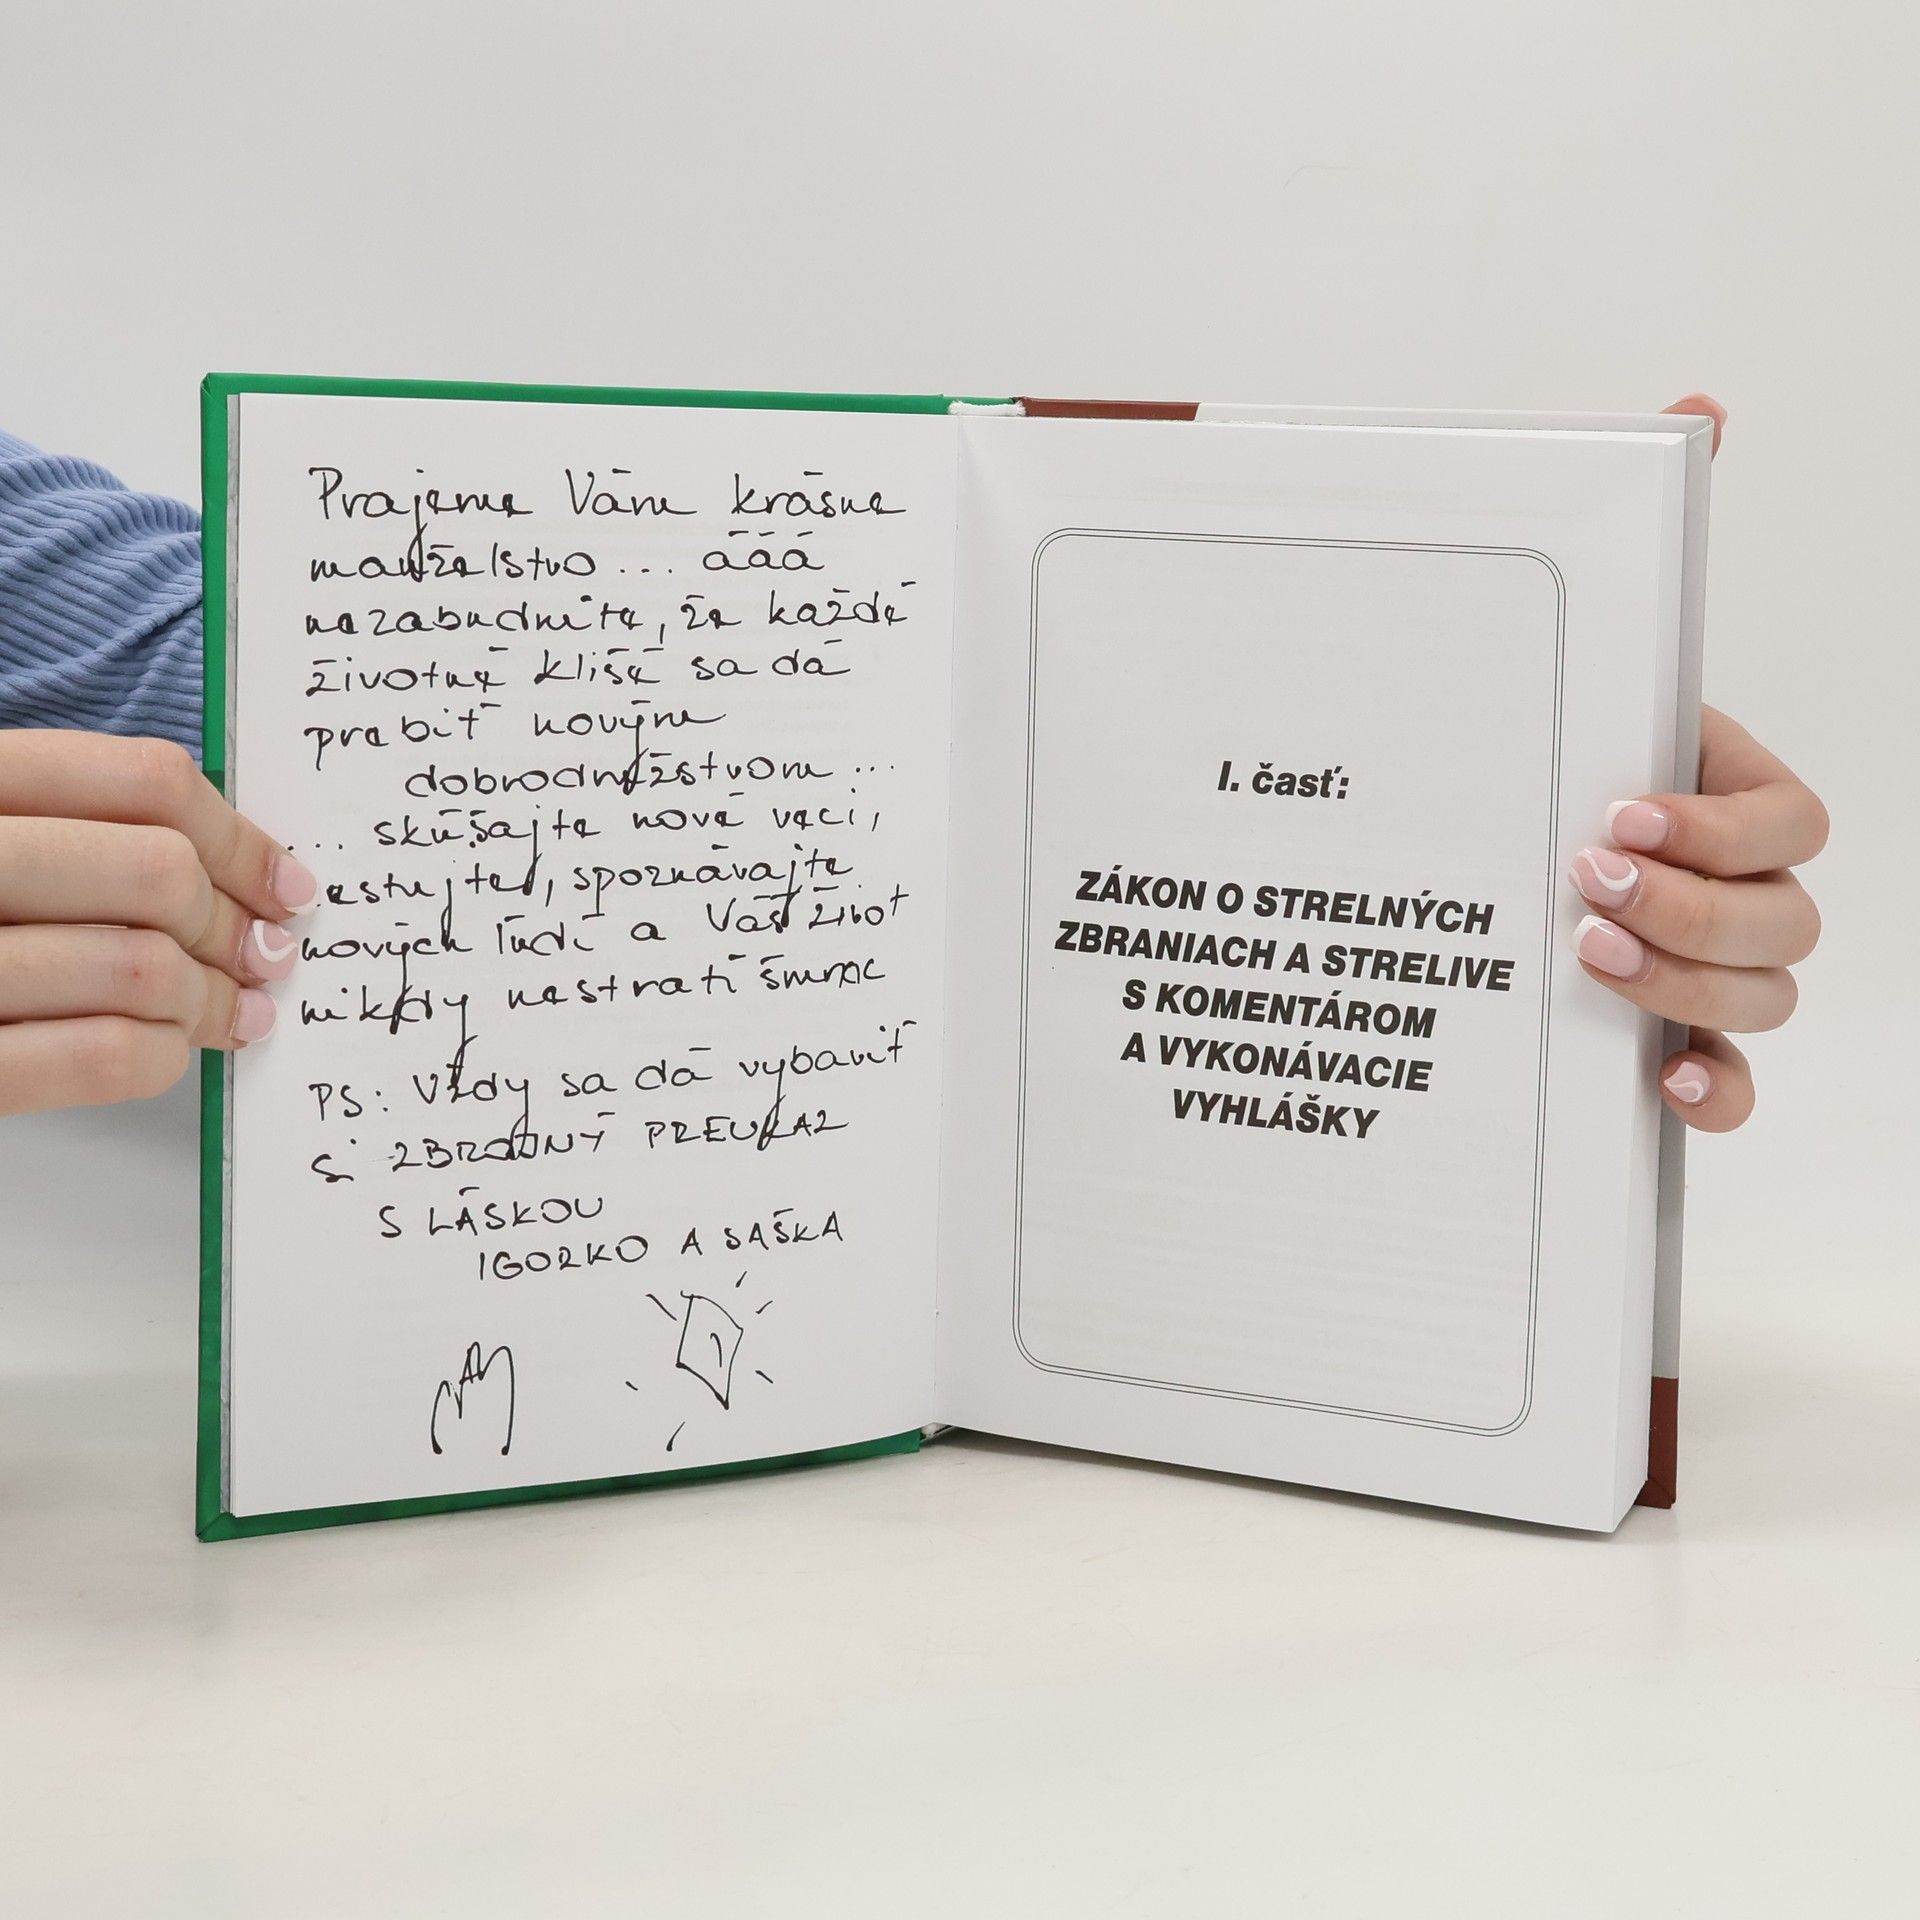 Prajeme Vám krásne
manželstvo... ááá
nezabudnite, že každé
životné klišé sa dá
prebiť novým
dobrodružstvom...
... skúšajte nové veci,
cestujte, spoznávajte
nových ľudí a Váš život
nikdy nestratí šmrnc
PS: Vždy sa dá vybaviť
si ZBROJNÝ PREUKAZ
S LÁSKOU
IGORKO A SAŠKA
I. časť:
ZÁKON O STRELNÝCH
ZBRANIACH A STRELIVE
S KOMENTÁROM
A VYKONÁVACIE
VYHLÁŠKY